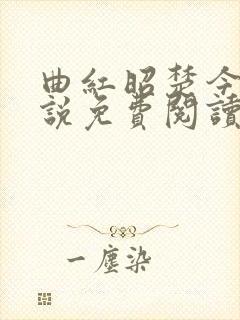 曲紅昭楚今
說免費閱讀
一塵染